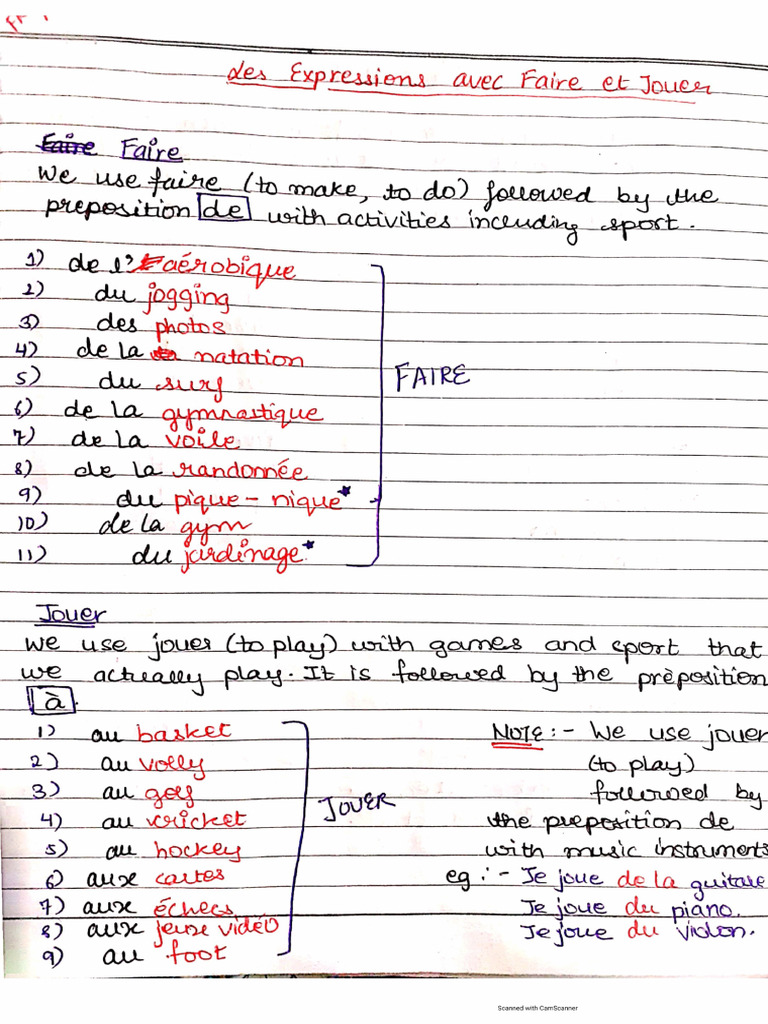 des Expressions avec Faire et Jouer
Faire Faire
We use faire (to make, to do) followed by the
preposition de with activities including sport.
1) de l'aérobique
2) du jogging
3) des photos
4) de la natation
5) du surf
6) de la gymnastique
7) de la voile
8) de la randonnée
9) du pique-nique*
10) de la gym
11) du jardinage*
FAIRE
Jouer
We use jouer (to play) with games and sport that
we actually play. It is followed by the prèposition
à.
1) au basket
2) au volly
3) au golf
4) au cricket
5) au hockey
6) aux cartes
7) aux échecs
8) aux jeux vidéo
9) au foot
JOUER
NOTE:- We use jouer
(to play)
followed by
the preposition de
with music instruments
eg:- Je joue de la guitare
Je joue du piano.
Je joue du violon.
Scanned with CamScanner